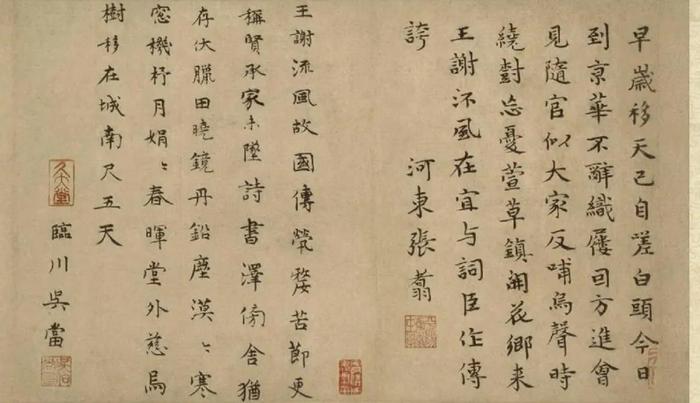 早歲移天已自嗟白頭今日
到京華不辭織屨囙方進會
見隨官似大家反哺烏聲時
繞對忘憂萱草鎮開花鄉来
王謝流風在宜与詞臣作傳
誇
河東張翥
王謝流風故國傳煢嫠苦節更
稱賢承家未墜詩書澤傍舍猶
存伏臘田曉鏡丹鉛塵漠〻寒
窓機杼月娟〻春暉堂外慈烏
樹移在城南尺五天
臨川吳當